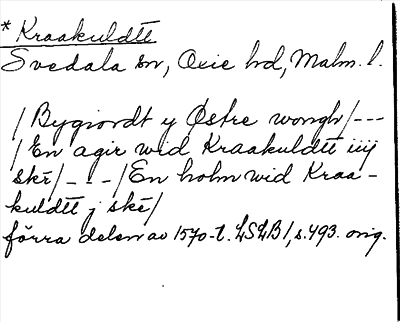 * Kraakuldtt
Svedala sn, Oxie hd, Malm. l.
/Bygiordt y Østre wongh/---
/En agir wid Kraakuldtt iiij
skē/---/En holm wid Kraa-
kuldtt j skē/
förra delen av 1570-t. LSLB1, s. 493. orig.